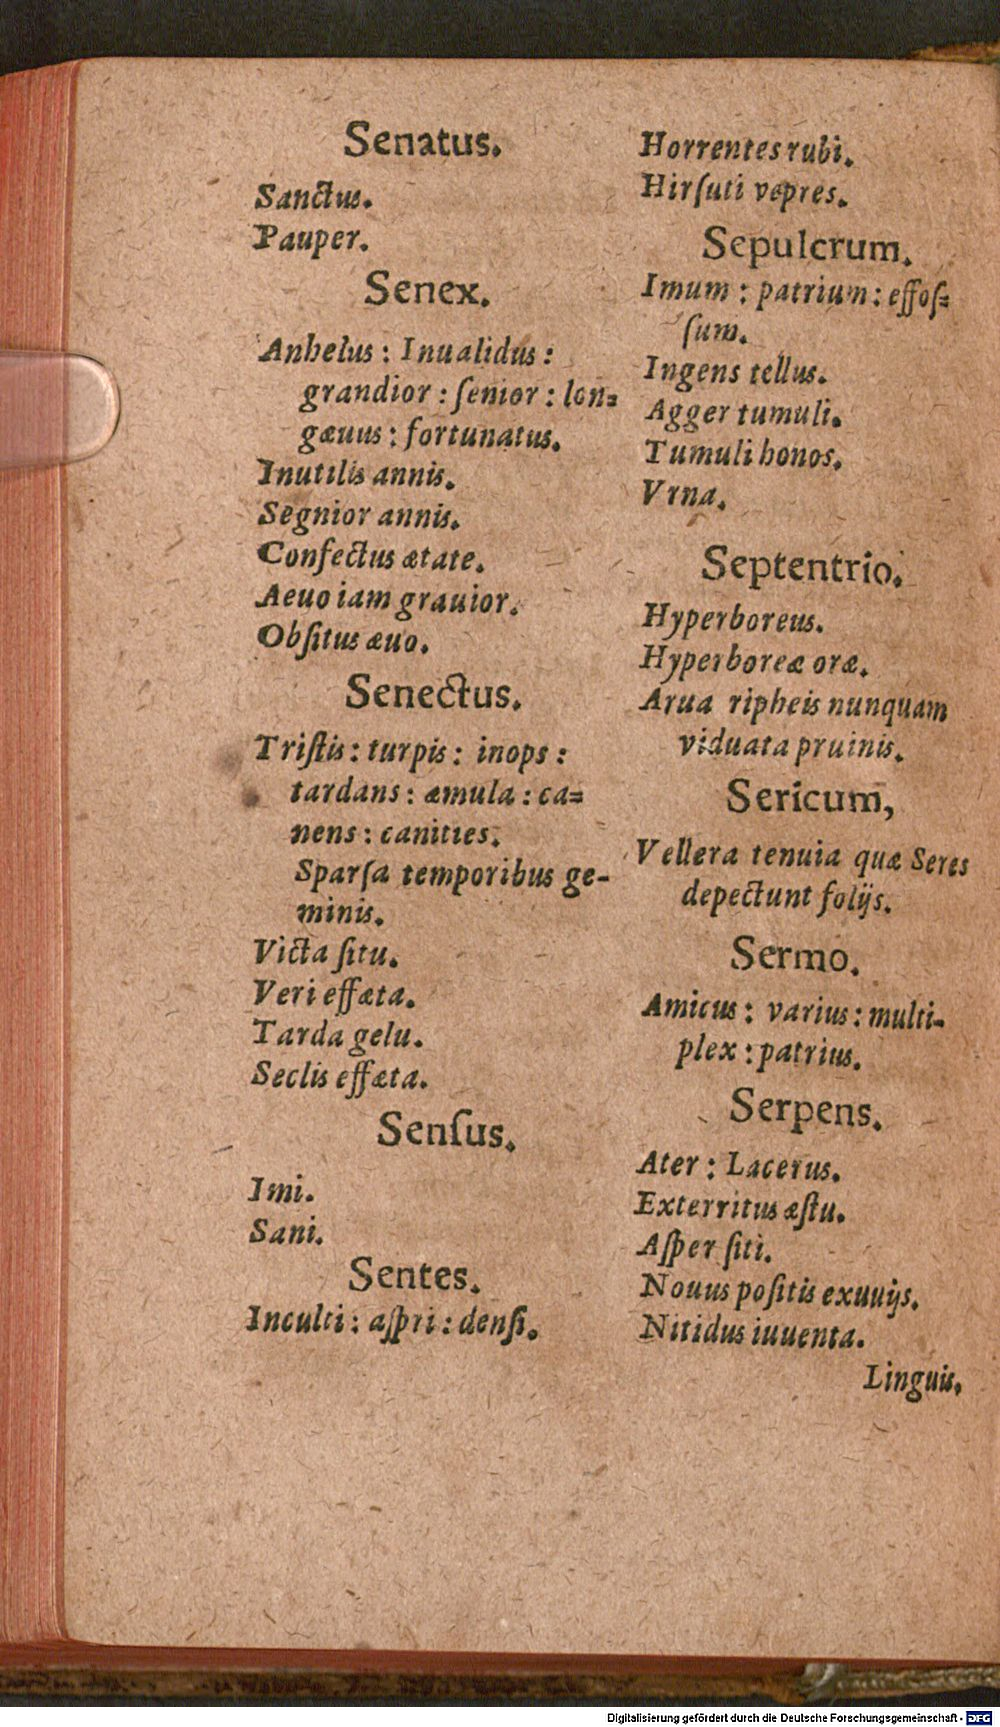 Senatus.
Sanctus.
Pauper.
Senex.
Anhelus : Inualidus :
grandior : ſenior : lon⸗
gæuus : fortunatus.
Inutilis annis.
Segnior annis.
Confectus ætate.
Aeuo iam grauior.
Obſitus æuo.
Senectus.
Triſtis : turpis : inops :
tardans : æmula : ca⸗
nens : canities.
Sparſa temporibus ge-
minis.
Victa ſitu.
Veri effæta.
Tarda gelu.
Seclis effæta.
Senſus.
Imi.
Sani.
Sentes.
Inculti : aſpri : denſi.
Horrentes rubi.
Hirſuti vepres.
Sepulcrum.
Imum : patrium : effoſ⸗
ſum.
Ingens tellus.
Agger tumuli.
Tumuli honos.
Vrna.
Septentrio.
Hyperboreus.
Hyperboreæ oræ.
Arua ripheis nunquam
viduata pruinis.
Sericum,
Vellera tenuia quæ Seres
depectunt folijs.
Sermo.
Amicus : varius : multi-
plex : patrius.
Serpens.
Ater : Lacerus.
Exterritus æſtu.
Aſper ſiti.
Nouus poſitis exuuijs.
Nitidus iuuenta.
Linguis.
Digitalisierung gefördert durch die Deutsche Forschungsgemeinschaft - DFG